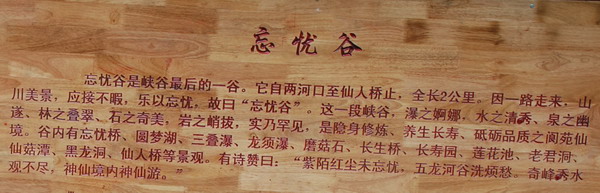 忘忧谷
忘忧谷是峡谷最后的一谷。它自两河口至仙人桥止，全长2公里。因一路走来，山
川美景，应接不暇，乐以忘忧，故曰“忘忧谷”。这一段峡谷，瀑之婀娜，水之清秀，泉之幽
邃、林之叠翠、石之奇美，岩之峭拔，实乃罕见，是隐身修炼、养生长寿、砥砺品质之阆苑仙
境。谷内有忘忧桥、圆梦湖、三叠瀑、龙须瀑、磨菇石、长生桥、长寿园、莲花池、老君洞、
仙菇潭、黑龙洞、仙人桥等景观。有诗赞曰：“紫陌红尘未忘忧，五龙河谷洗烦愁。奇峰秀水
观不尽，神仙境内神仙游。”